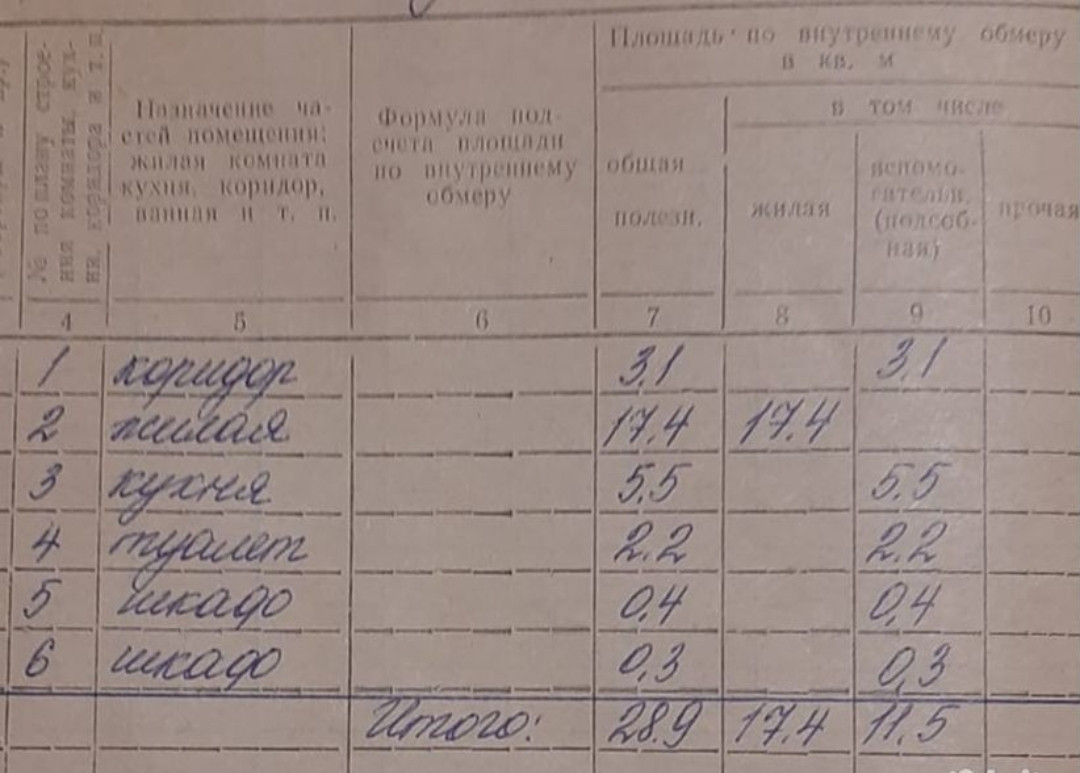 Площадь по внутреннему обмеру
в кв. м
в том числе
№ по плану строе-
ния комнаты, кух-
ни, коридора и т.п.
Назначение ча-
стей помещения:
жилая комната
кухня, коридор,
ванная и т. п.
Формула под-
счета площади
по внутреннему
обмеру
общая
полезн.
жилая
вспомо-
гательн.
(подсоб-
ная)
прочая
4 5 6 7 8 9 10
1 коридор 3,1 3,1
2 жилая 17.4 17.4
3 кухня 5,5 5,5
4 туалет 2.2 2.2
5 шкаф 0,4 0,4
6 шкаф 0,3 0,3
Итого: 28.9 17.4 11.5